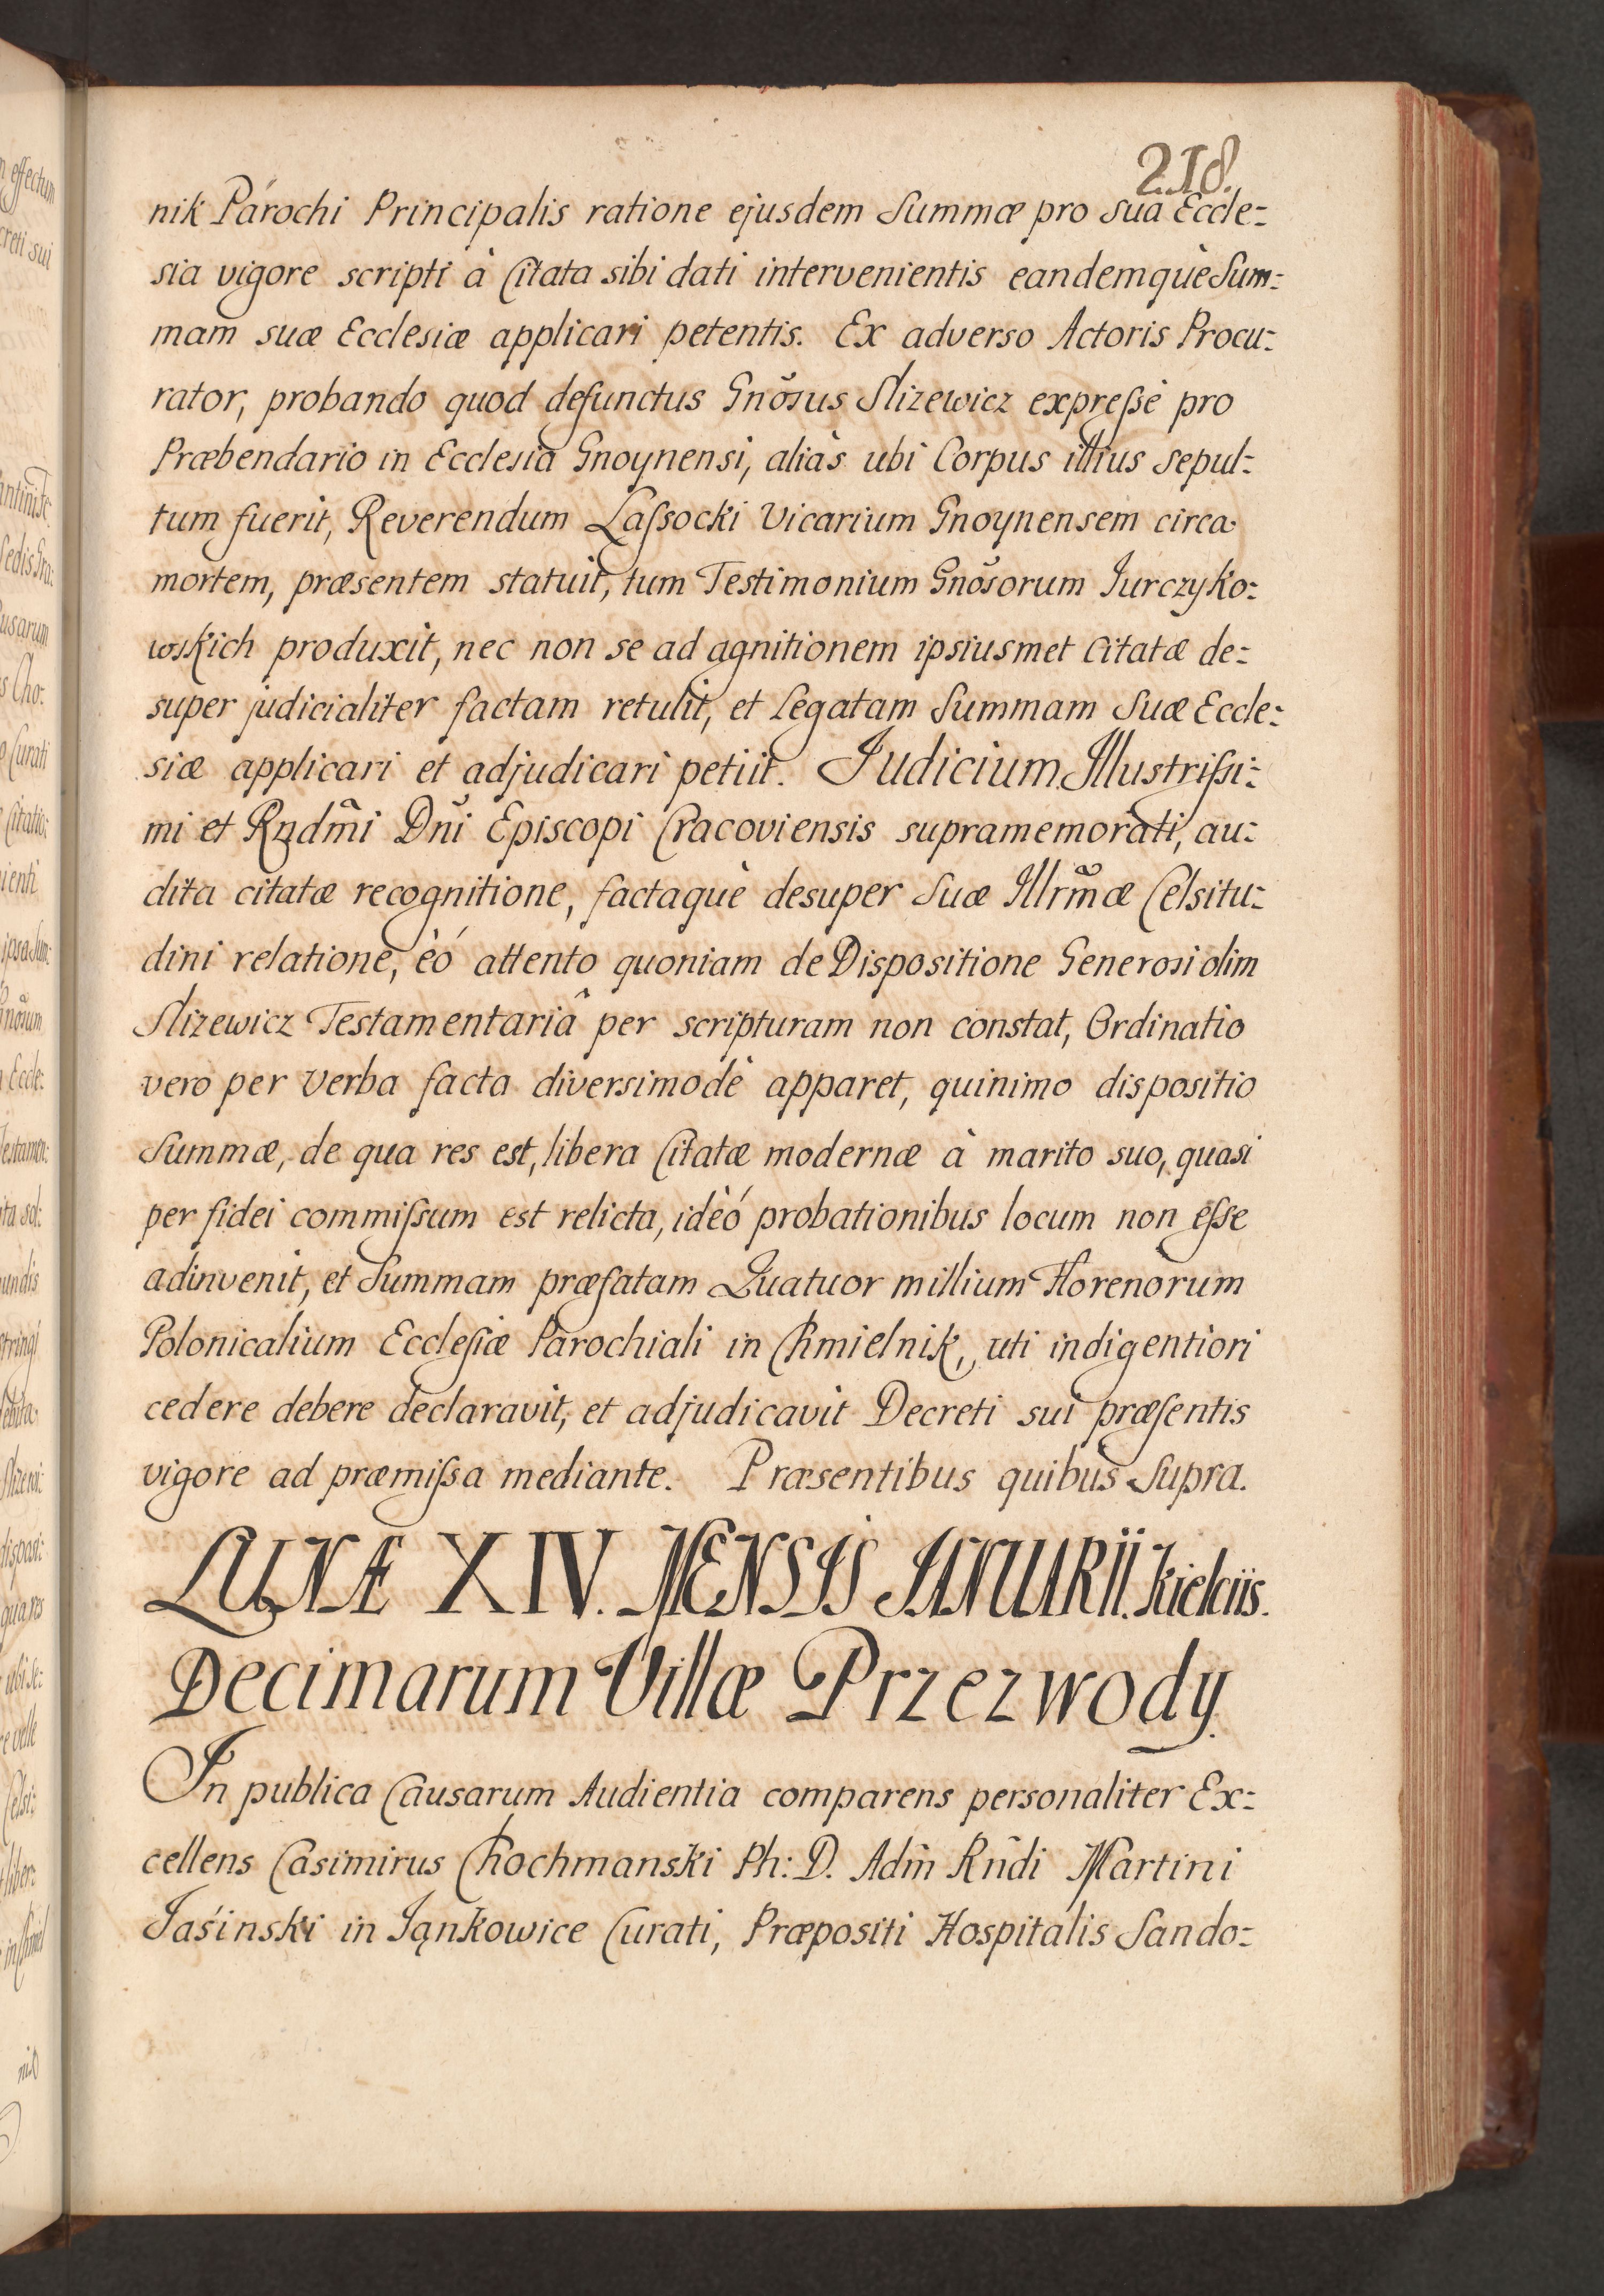 218.
nik Parochi Principalis ratione ejusdem Summæ pro sua Eccle:
sia vigore scripti à Citata sibi dati intervenientis eandemquè Sum:
mam suæ Ecclesiæ applicari petentis. Ex adverso Actoris Procu:
rator, probando quod defunctus Gnõsus Slizewicz expreßè pro
Præbendario in Ecclesia Gnoynensi, aliàs ubi Corpus illius sepul:
tum fuerit, Reverendum Laſsocki Vicarium Gnoynensem circa
mortem, præsentem statuit, tum Testimonium Gnõsorum Jurczyko:
wskich produxit, nec non se ad agnitionem ipsiusmet Citatæ de:
super judicialiter factam retulit, et Legatam Summam Suæ Eccle:
siæ applicari et adjudicari petiit. Judicium Illustriſsi:
mi et Rndm̃i Dñi Episcopi Cracoviensis supramemorati, au:
dita citatæ recognitione, factaquè desuper Suæ Illrm̃æ Celsitu:
dini relatione, èó attento quoniam de Dispositione Generosi olim
Slizewicz Testamentariâ per scripturam non constat, Ordinatio
vero per verba facta diversimodè apparet, quinimo dispositio
Summæ, de qua res est, libera Citatæ modernæ à marito suo, quasi
per fidei commiſsum est relicta, idèó probationibus locum non eſse
adinvenit, et Summam præfatam Quatuor millium Florenorum
Polonicalium Eccleſiæ Parochiali in Chmielnik, uti indigentiori
cedere debere declaravit, et adjudicavit Decreti sui præſentis
vigore ad præmiſsa mediante. Præsentibus quibus Supra.
LUNÆ XIV. MENSIS JANUARII. Kielciis.
Decimarum Villæ Przezwody.
In publica Causarum Audientia comparens personaliter Ex:
cellens Casimirus Chochmanski Ph: D. Adm̃ Rñdi Martini
Jaśinski in Jąnkowice Curati, Præpositi Hospitalis Sando: